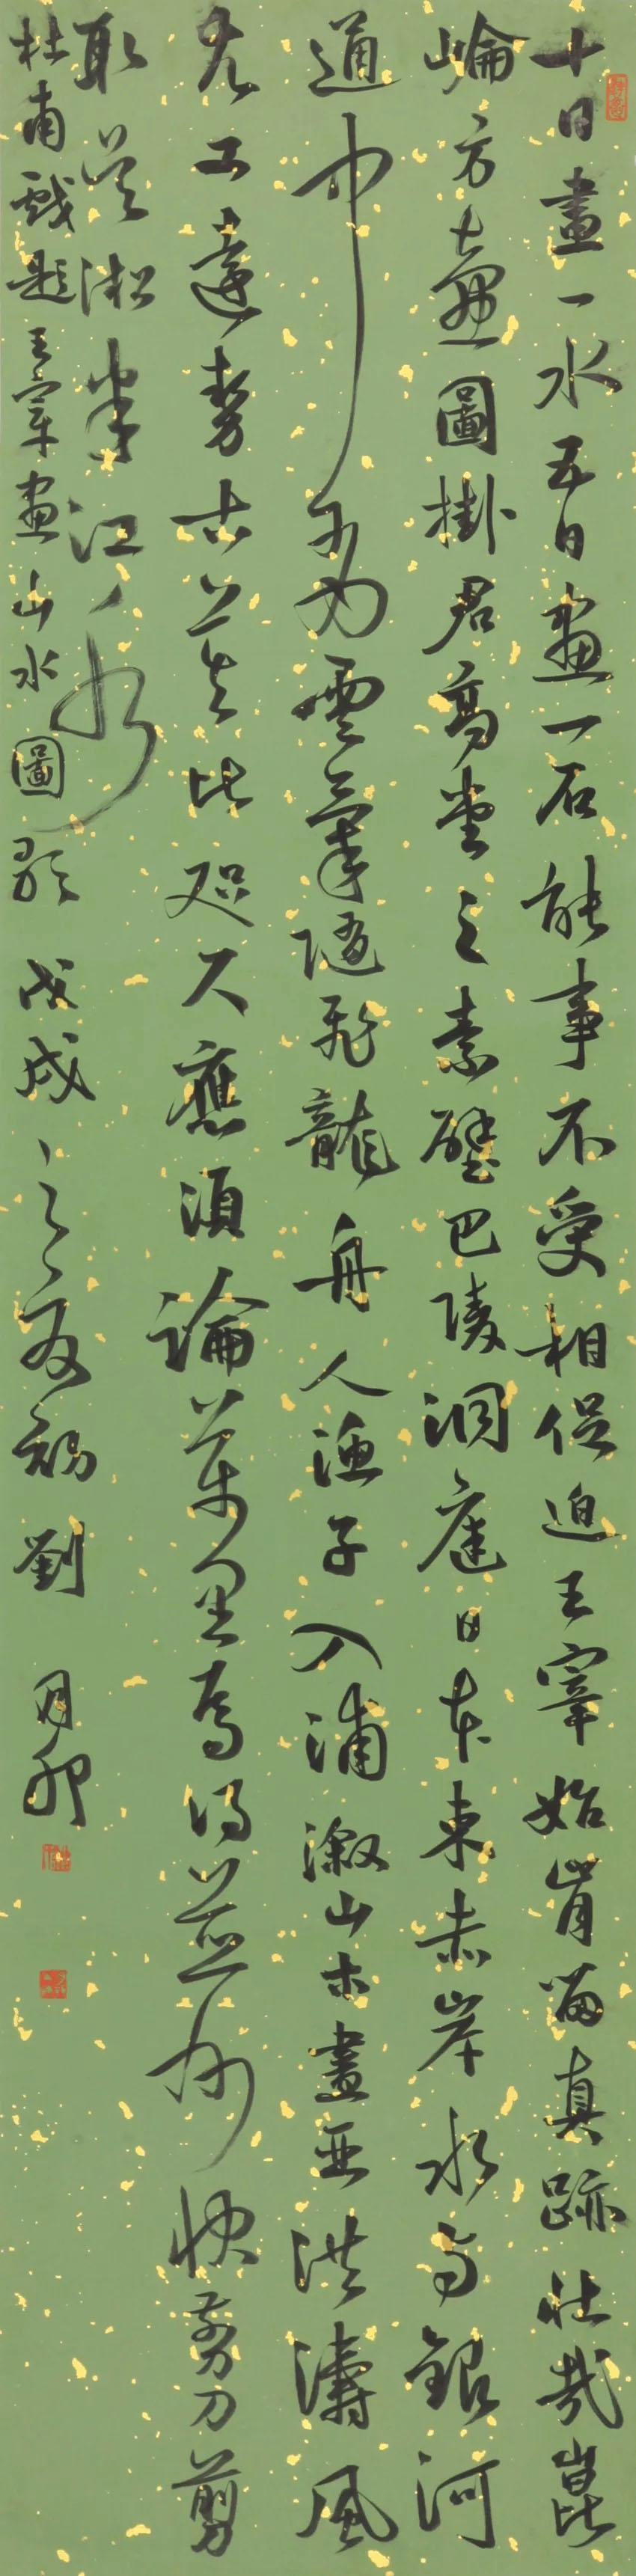 十日畫一水五日畫一石能事不受相促迫王宰始肯留真跡壯哉崑
崘方壺圖掛君高堂之素壁巴陵洞庭日本東赤岸水與銀河
通中有雲氣隨飛龍舟人漁子入浦溆山木盡亞洪濤風
尤工遠勢古莫比咫尺應須論萬里焉得並州快剪刀剪
取吳淞半江水
杜甫戲題王宰畫山水圖歌 戊戌之夏初劉月卯